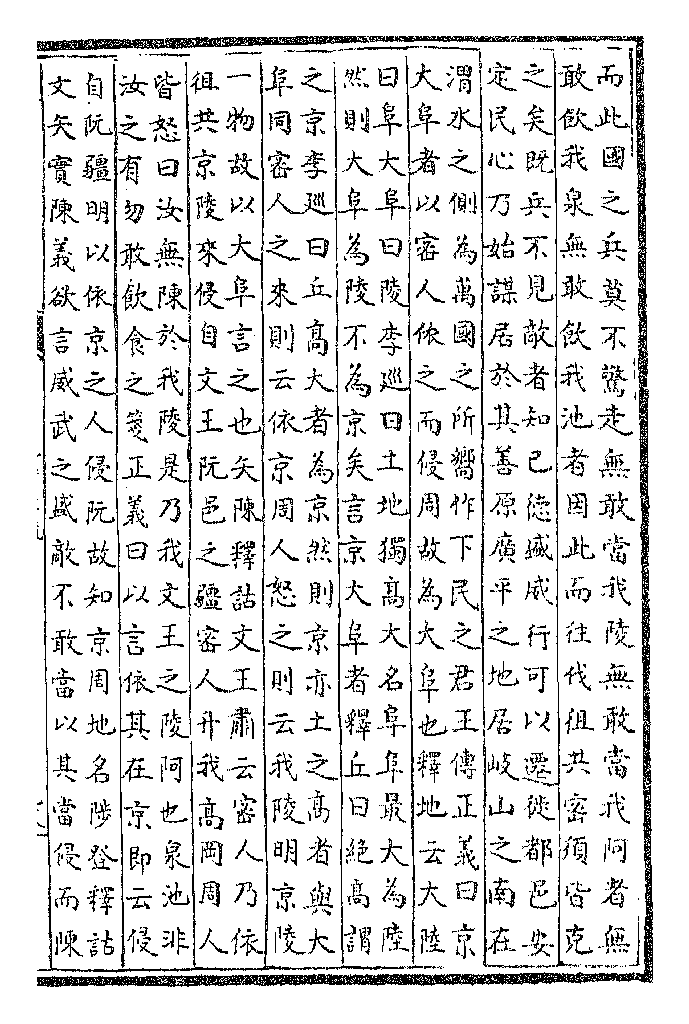 而此國之兵莫不驚走無敢當我陵無敢當我阿者無
敢飲我泉無敢飲我池者因此而往伐徂共密須皆克
之矣既兵不見敵者知己德盛威行可以遷徙都邑安
定民心乃始謀居於其善原廣平之地居岐山之南在
渭水之側為萬國之所嚮作下民之君王傳正義曰京
大阜者以密人依之而侵周故為大阜也釋地云大陸
曰阜大阜曰陵李廵曰土地獨高大名阜阜最大為陸
然則大阜為陵不為京矣言京大阜者釋丘曰絶高謂
之京李廵曰丘高大者為京然則京亦土之高者與大
阜同密人之來則云依京周人怒之則云我陵明京陵
一物故以大阜言之也矢陳釋詁文王肅云密人乃依
徂共京陵來侵自文王阮邑之疆密人升我高岡周人
皆怒曰汝無陳於我陵是乃我文王之陵阿也泉池非
汝之有勿敢飲食之箋正義曰以言依其在京即云侵
自阮疆明以依京之人侵阮故知京周地名陟登釋詁
文矢實陳義欲言威武之盛敵不敢當以其當侵而陳